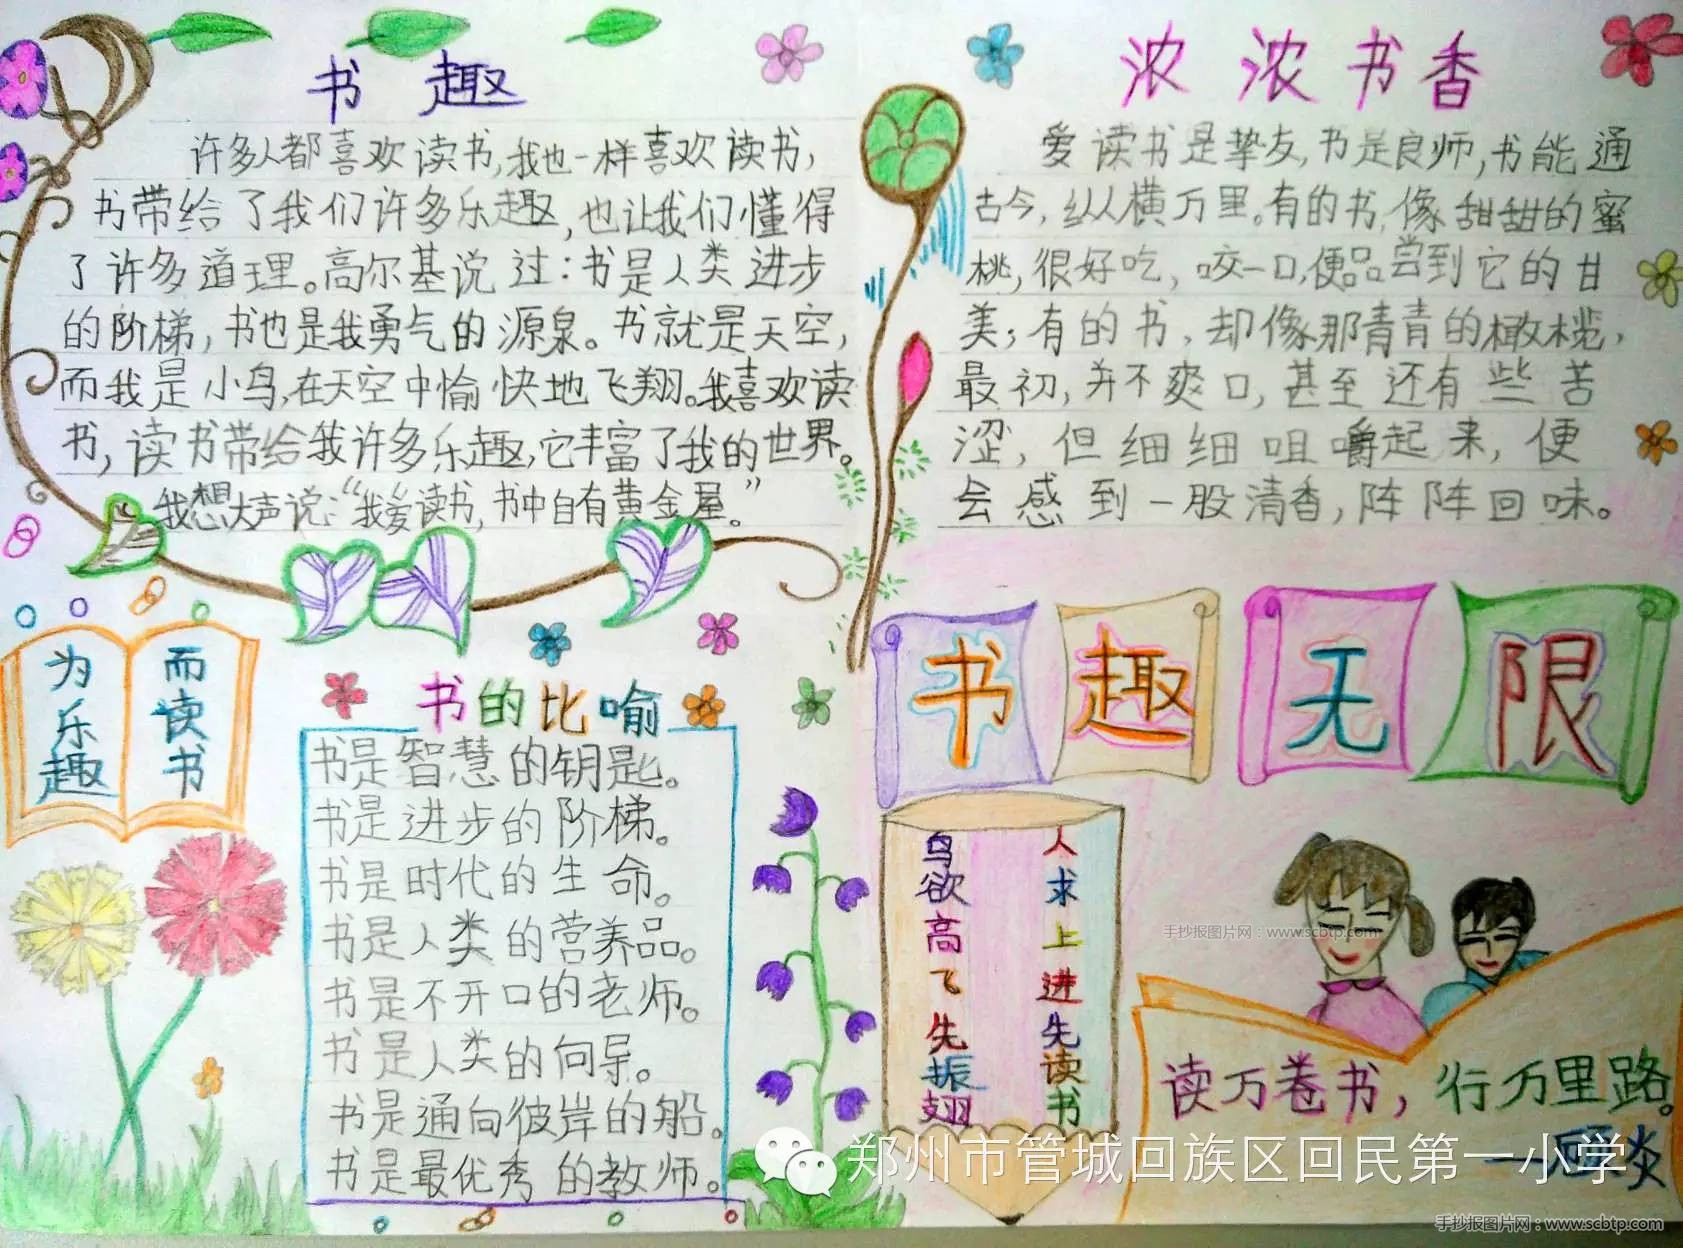 书趣
许多人都喜欢读书,我也一样喜欢读书,
书带给了我们许多乐趣,也让我们懂得
了许多道理。高尔基说过:书是人类进步
的阶梯,书也是我勇气的源泉。书就是天空,
而我是小鸟,在天空中愉快地飞翔。我喜欢读
书,读书带给我许多乐趣,它丰富了我的世界。
我想大声说:“我爱读书,书中自有黄金屋。”
浓浓书香
爱读书是挚友,书是良师,书能通
古今,纵横万里。有的书,像甜甜的蜜
桃,很好吃,咬一口,便品尝到它的甘
美;有的书,却像那青青的橄榄,
最初,并不爽口,甚至还有些苦
涩,但细细咀嚼起来,便
会感到一股清香,阵阵回味。
为乐趣
而读书
书的比喻
书是智慧的钥匙。
书是进步的阶梯。
书是时代的生命。
书是人类的营养品。
书是不开口的老师。
书是人类的向导。
书是通向彼岸的船。
书是最优秀的教师。
书趣无限
鸟欲高飞先振翅
人求上进先读书
手抄报图片网:www.scbtp.com
读万卷书,行万里路。
郑州市管城回族区回民第一小学
手抄报图片网:www.scbtp.com